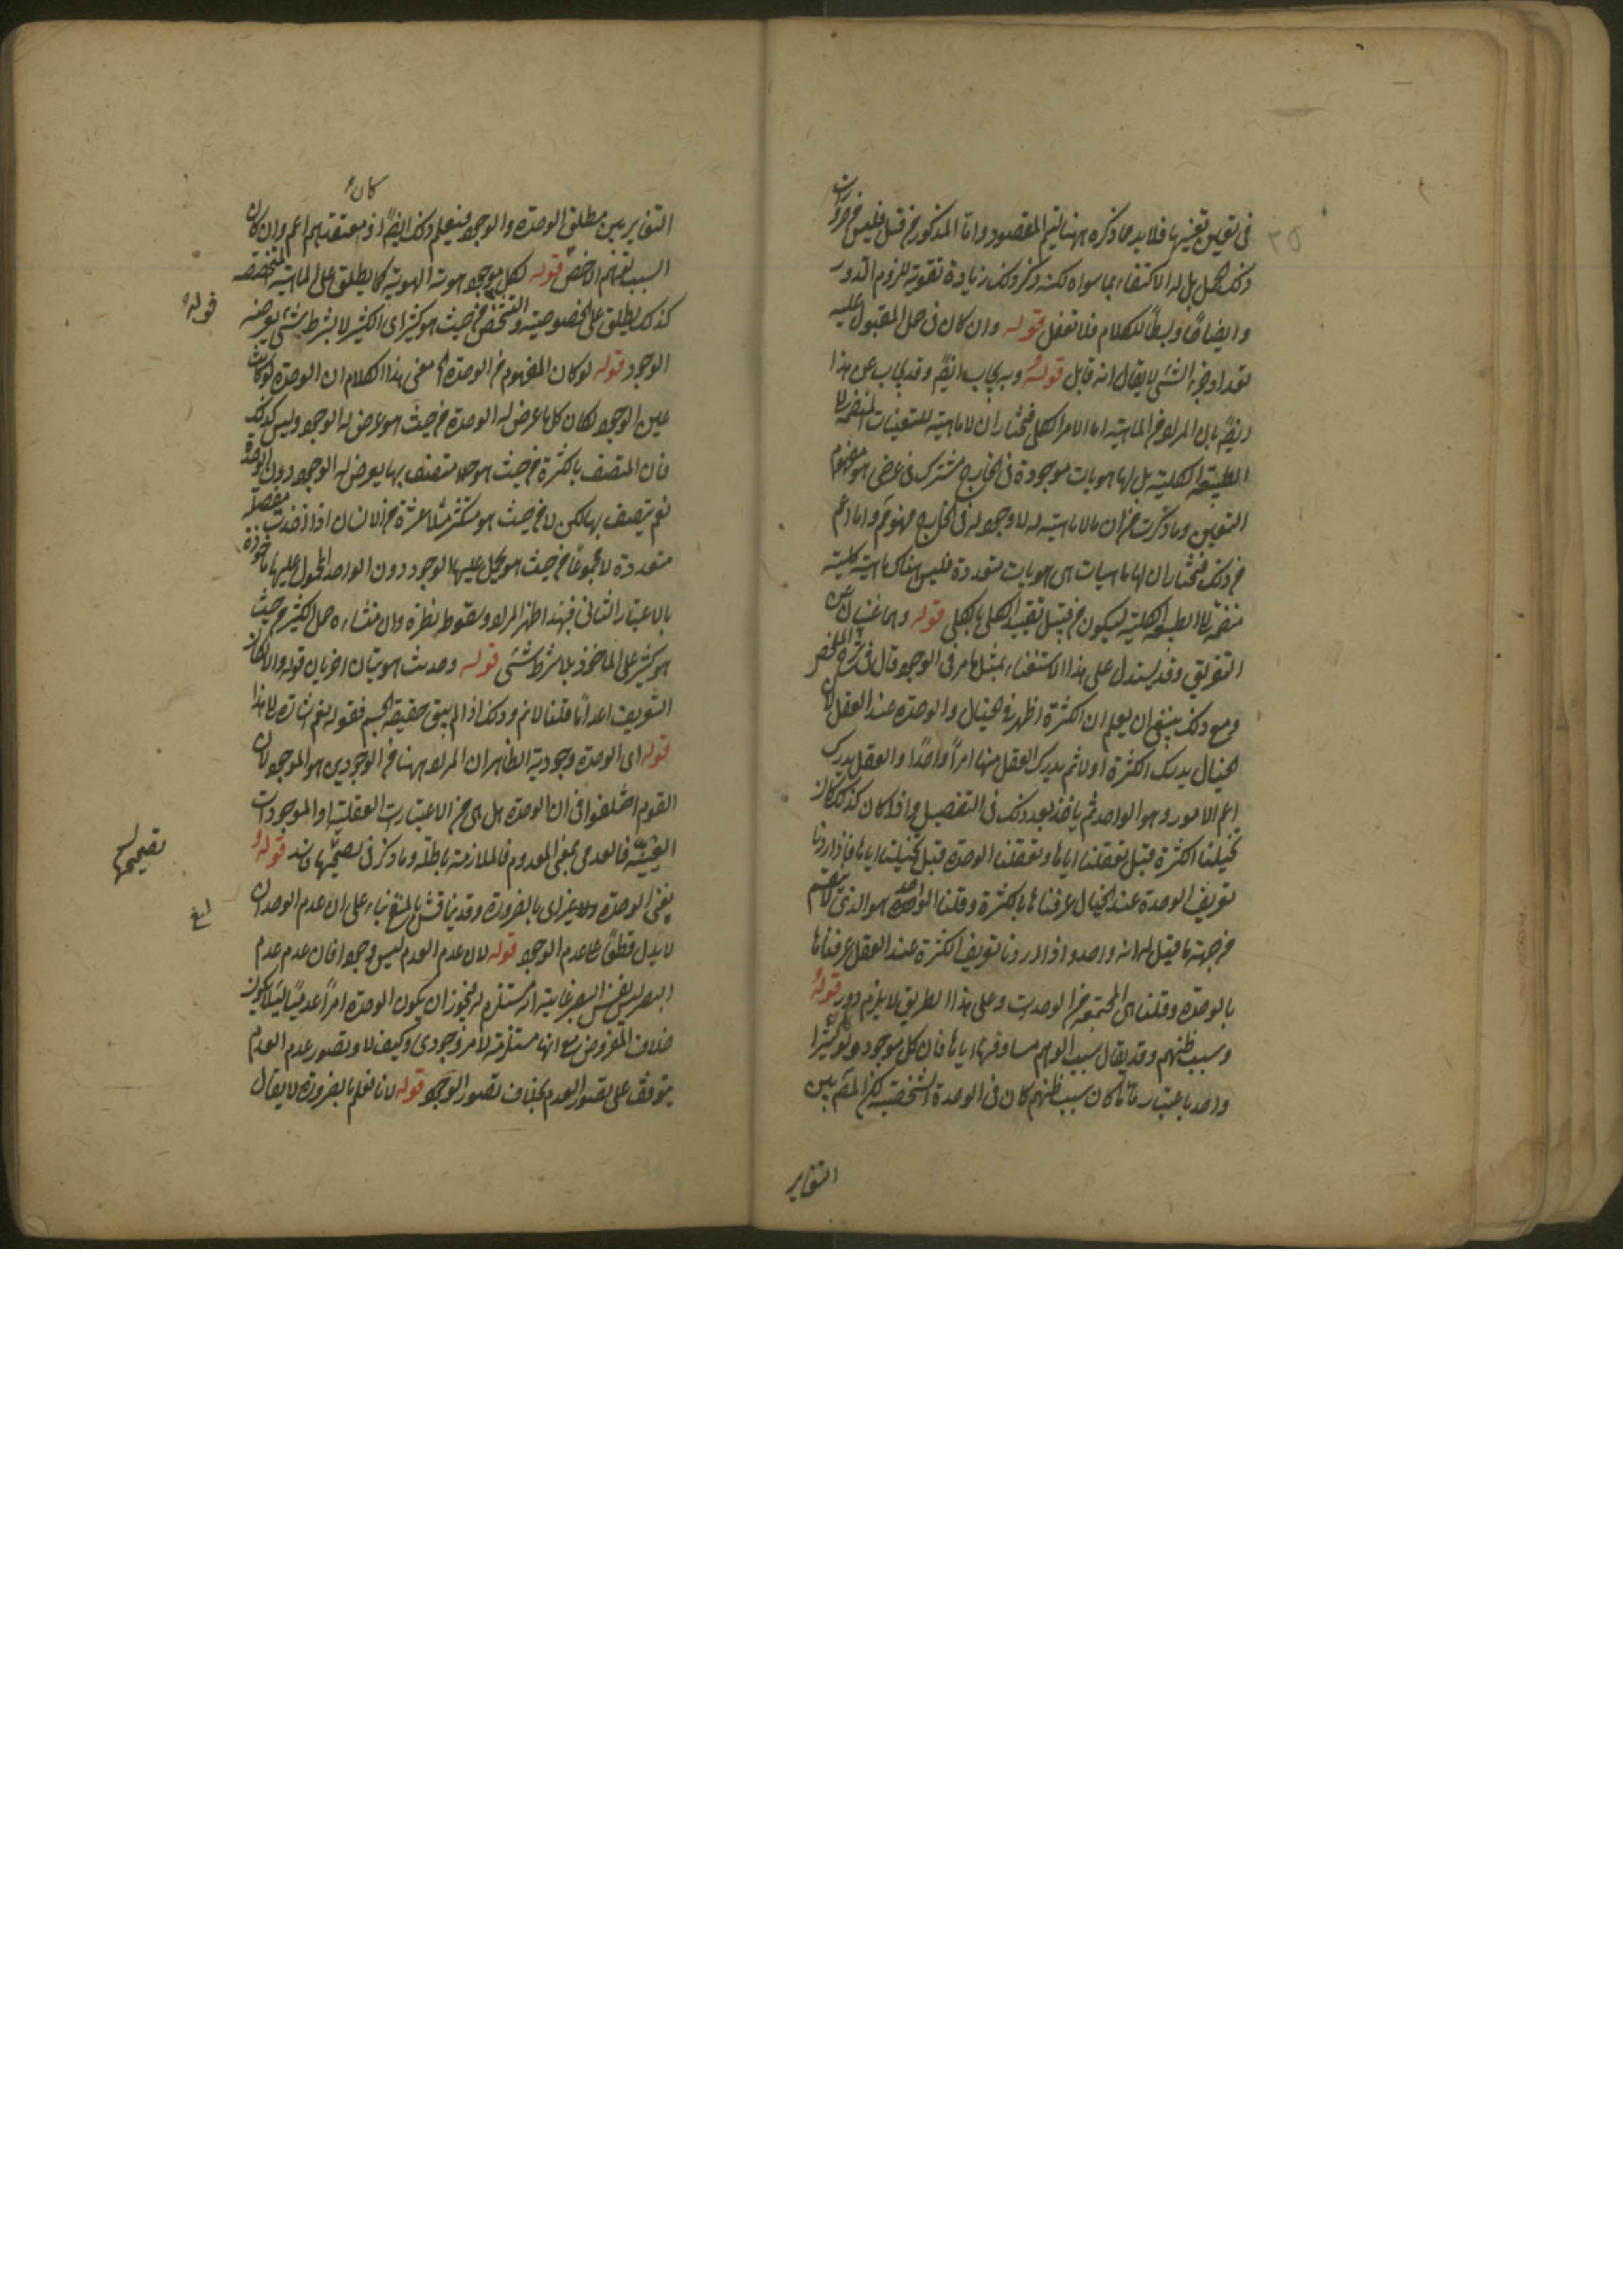 في تعين تغييرها فلا بد مما ذكره ههنا ليتم المقصود واما المذكور من قبل فليس من ضرورات
ذلك الحمل بل له الاكتفاء بما سواه لكنه ذكر ذلك زيادة تقوية للزوم الدور
وايضاحا وبسطا للكلام فلا تغفل قوله وان كان في حل المقبول عليه
قوله ويجاب ايضا وقد يجاب عن هذا
ايضا بان المراد من الماهية اما الامر الكلي فنختار ان لا ماهية للتعينات المنضمة الى
الطبيعة الكلية بل لها هويات موجودة في الخارج مشتركة في عرضي هو مفهوم
التعين وما ذكرت من ان ما لا ماهية له لا وجود له في الخارج ممنوع واما اعم
من ذلك فنختار ان لها ماهيات هي هويات متعددة فليس هناك ماهية كلية
منضمة الى الطبيعة الكلية ليكون من قبيل تقييد الكلي بالكلي قوله وهما غنيان عن
التعريف وقد يستدل على هذا الاستغناء بمثل ما مر في الوجود قال في شرح الملخص
ومع ذلك ينبغي ان يعلم ان الكثرة اظهر في الخيال والوحدة عند العقل لان
الخيال يدرك الكثرة اولا ثم يدرك العقل منها امرا واحدا والعقل يدرك
اعم الامور وهو الواحد ثم ياخذ بعد ذلك في التفصيل واذا كان كذلك كان
تخيلنا الكثرة قبل تعقلنا اياها وتعقلنا الوحدة قبل تخيلنا اياها فاذا اردنا
تعريف الوحدة عند الخيال عرفناها بالكثرة وقلنا الواحد هو الذي لا ينقسم
من جهة ما قيل له انه واحد واذا اردنا تعريف الكثرة عند العقل عرفناها
بالوحدة وقلنا هي المجتمعة من الوحدات وعلى هذا الطريق لا يلزم دور قوله
وسبب ظنهم وقد يقال سبب الوهم مساوقتها اياها فان كل موجود ولو كثيرا
واحد باعتبار ما كان سبب ظنهم كان في الوحدة الشخصية لكن لما تبين
التغاير
كان
التغاير بين مطلق الوحدة والوجود فيعلم ذلك ايضا اذ معتقدهم اعم وان كان
السبب الاخص قوله لكل موجود هوية الهوية كما يطلق على الماهية المشخصة
كذلك يطلق على الخصوصية والتشخص من حيث هو كثير اي الكثير لا بشرط شيء يعرضه
قوله
الوجود قوله لو كان المفهوم من الوحدة معنى هذا الكلام ان الوحدة لو كانت
عين الوجود لكان كل ما عرض له الوحدة من حيث هو عرض له الوجود وليس كذلك
فان المتصف بالكثرة من حيث هو متصف بها يعرض له الوجود دون الوحدة
نعم يتصف بها لكن لا من حيث هو متكثر مثلا عشرة من الانسان اذا اخذت مفصلة
متعددة لا مجموعا من حيث هو يحمل عليها الوجود دون الواحد المحمول عليها ماخوذة
بالاعتبار الثاني فبهذا اظهر المراد وسقوط نظره وان منشاءه حمل الكثير من حيث
هو كثير على الماخوذ بلا شرط شيء قوله وحدث هويتان اخريان قوله والا لكان
التفريق اعداما قلنا لانم وذلك اذا لم يبق حقيقة الجسم فقوله نعم اشارة الى هذا
قوله اي الوحدة وجودية الظاهر ان المراد ههنا من الوجودي هو الموجود لان
القوم اختلفوا في ان الوحدة هل هي من الاعتبارات العقلية او الموجودات
العينية فالعدمي بمعنى المعدوم فالملازمة باطلة وما ذكر في تصحيحها فاسد قوله
تصحيحها
بمعنى الوحدة ولا غير اي بالضرورة وقد يناقش بالمنع بناء على ان عدم الوحدان
لا يدل قطعا على عدم الوجود قوله لان عدم العدم ليس وجودا فان عدم عدم
البصر ليس نفس البصر غايته انه مستلزم له فيجوز ان يكون الوحدة امرا عدميا لئلا يكون
خلاف المفروض مع انها مستلزمة لامر وجودي وكيف لا وتصور عدم العدم
يتوقف على تصور العدم بخلاف تصور الوجود قوله لانا نعلم بالضرورة لا يقال